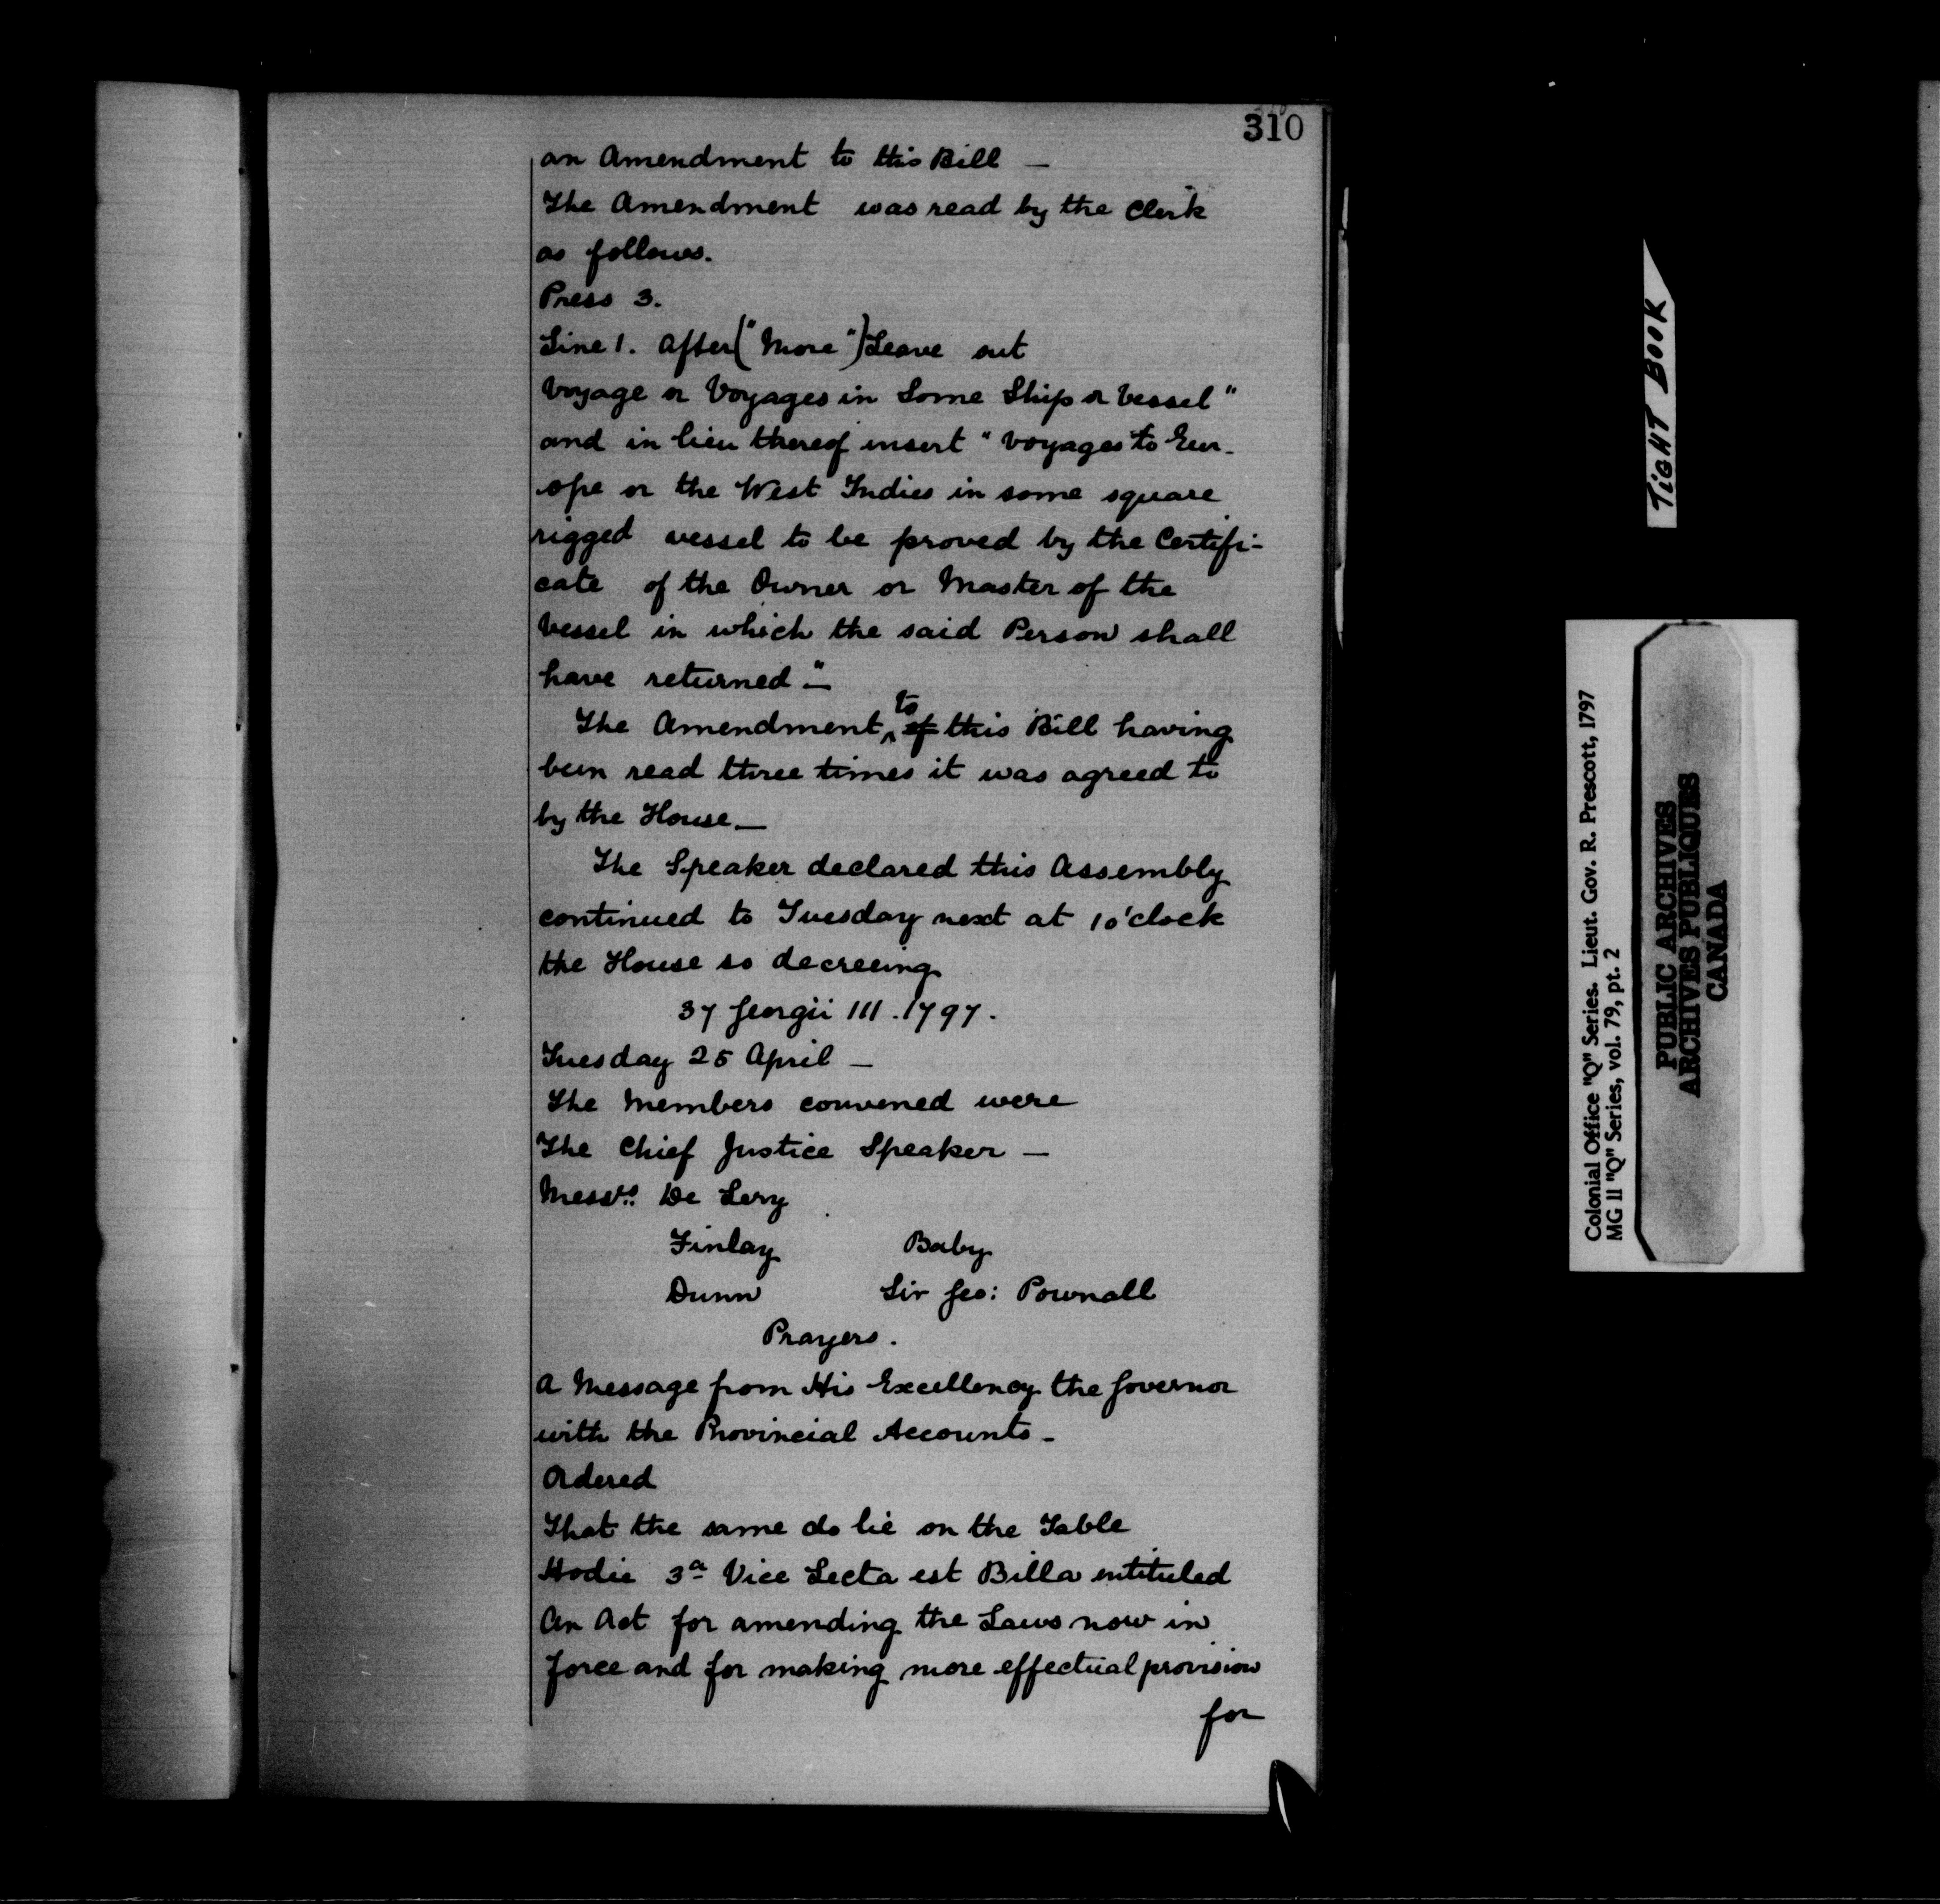 310
an Amendment to this Bill —
The Amendment was read by the Clerk
as follows.
Press 3.
Line 1. After ("More") Leave out
Voyage or Voyages in Some Ship or Vessel"
and in lieu thereof insert "Voyages to Eur-
ope or the West Indies in some square
rigged vessel to be proved by the Certifi-
cate of the Owner or Master of the
Vessel in which the said Person shall
have returned"—
The Amendment to of this Bill having
been read three times it was agreed to
by the House—
The Speaker declared this Assembly
continued to Tuesday next at 1 o'clock
the House so decreeing
37 Georgii III. 1797.
Tuesday 25 April —
The Members convened were
The Chief Justice Speaker —
Messrs. De Lery
Finlay Baby
Dunn Sir Geo: Pownall
Prayers.
A Message from His Excellency the Governor
with the Provincial Accounts—
Ordered
That the same do lie on the Table
Hodie 3a Vice Lecta est Billa intituled
An Act for amending the Laws now in
force and for making more effectual provision
for
TIGHT BOOK
Colonial Office "Q" Series. Lieut. Gov. R. Prescott, 1797
MG 11 "Q" Series, vol. 79, pt. 2
PUBLIC ARCHIVES
ARCHIVES PUBLIQUES
CANADA